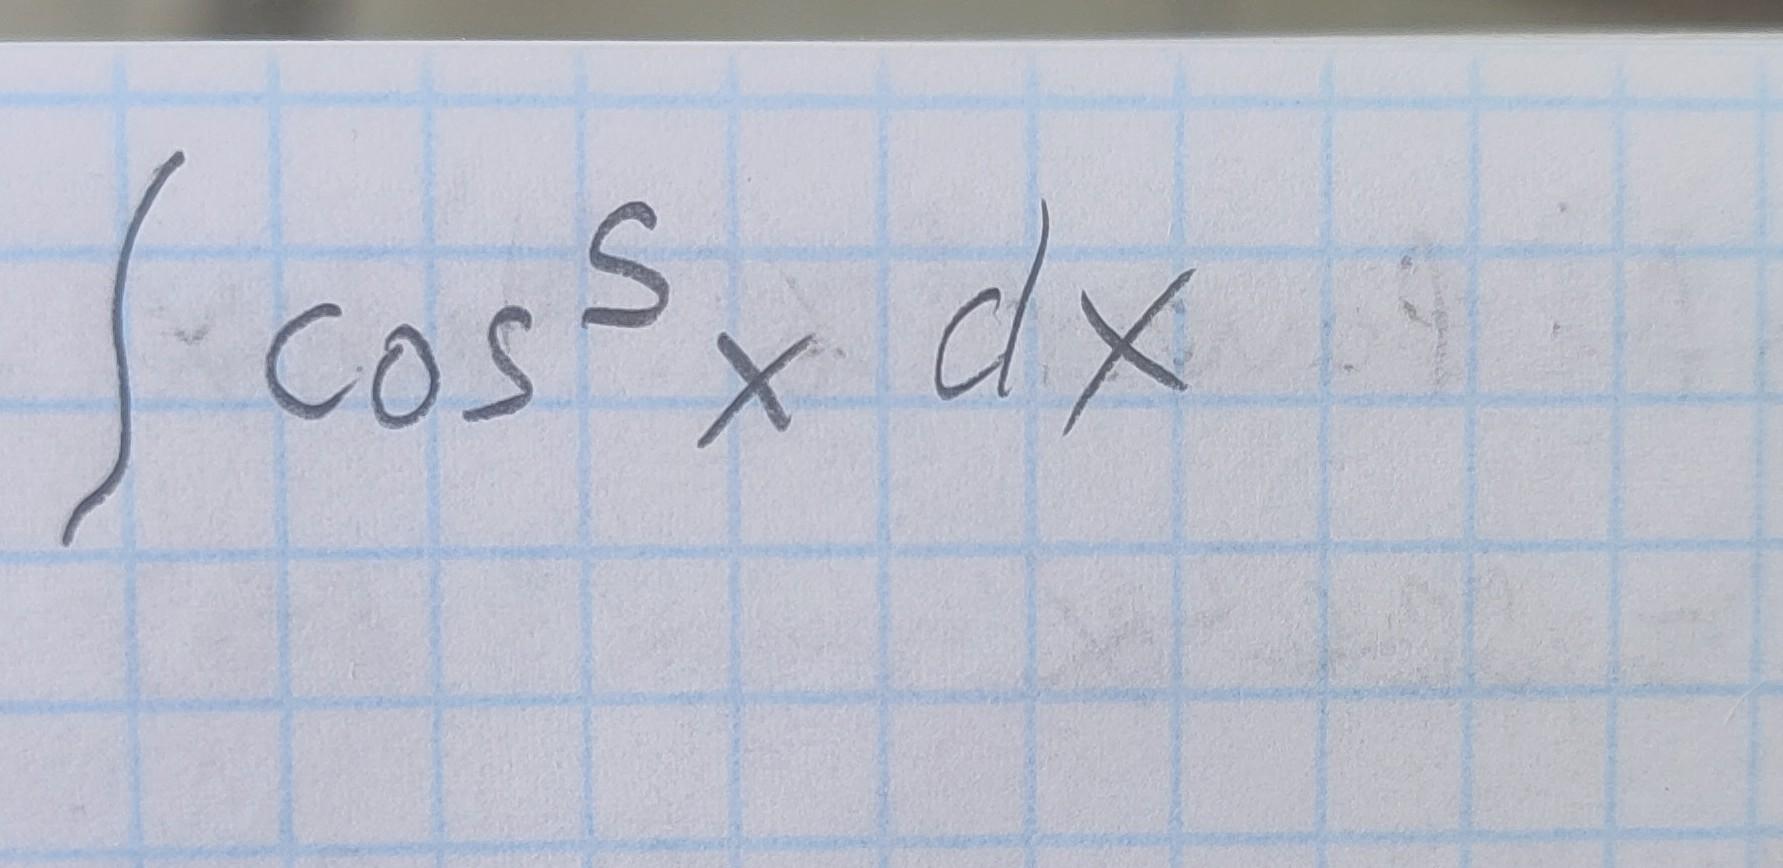 ∫ cos⁵ x dx